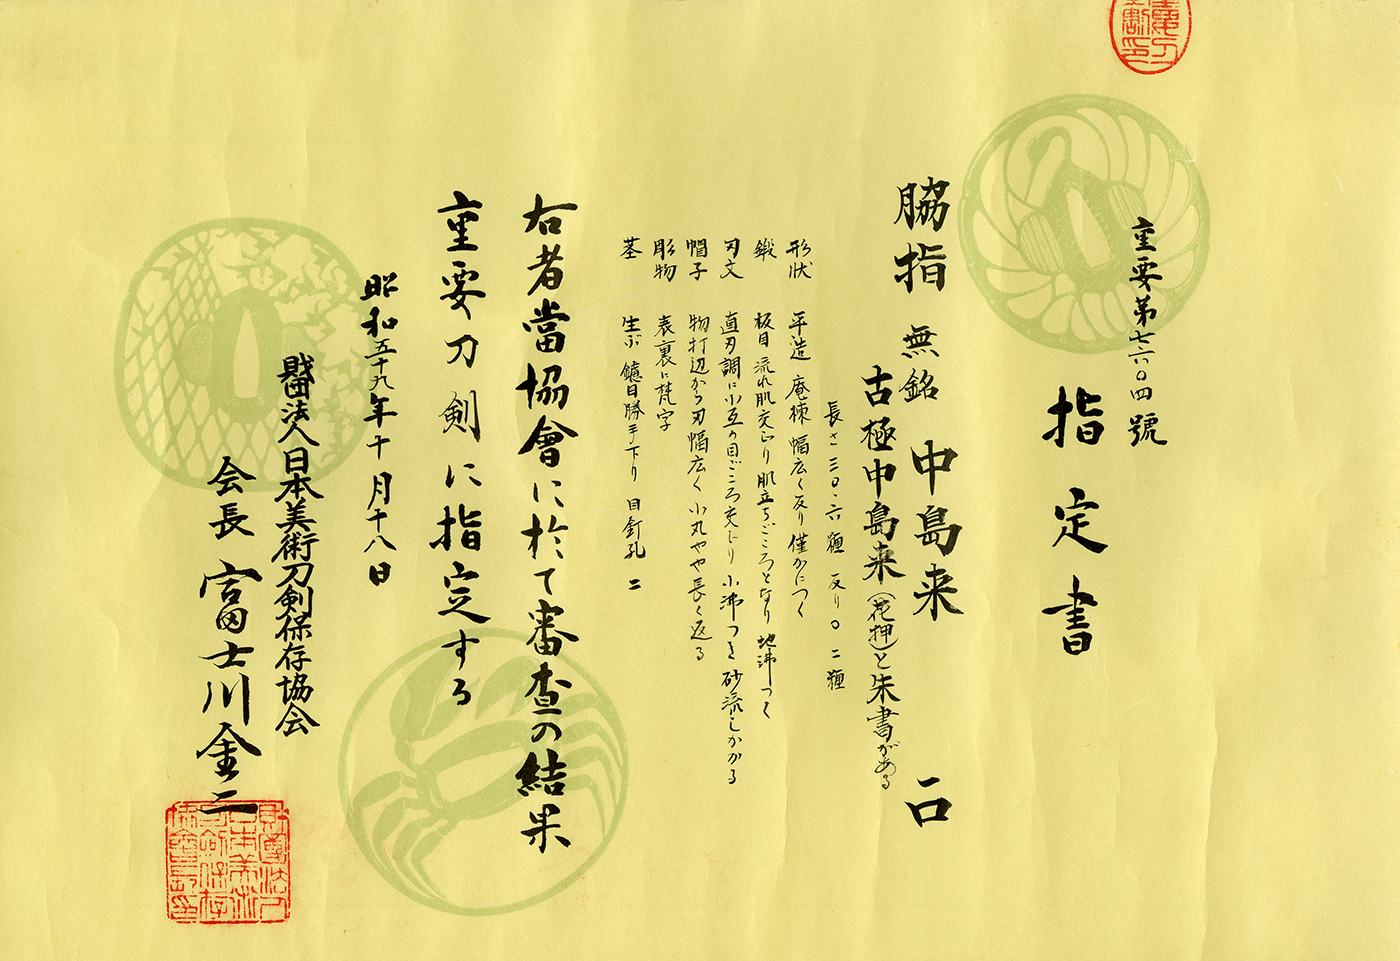 重要第七六〇四號
指定書
脇指 無銘 中島来 一口
古極中島来(花押)と朱書がある
長さ 三〇・六糎 反り 〇・二糎
形状 平造 庵棟 幅広く反り僅かにつく
鍛 板目 流れ肌交じり 肌立ちごころとなり 地沸つく
刃文 直刃調に小互の目ごころ交じり 小沸つき 砂流しかかる
帽子 物打辺から刃幅広く 小丸やや長く返る
彫物 表裏に梵字
茎 生ぶ 鑢目勝手下り 目釘孔 二
右者當協會に於て審査の結果
重要刀剣に指定する
昭和五十九年十月十八日
財団法人日本美術刀剣保存協会
会長 富士川金二